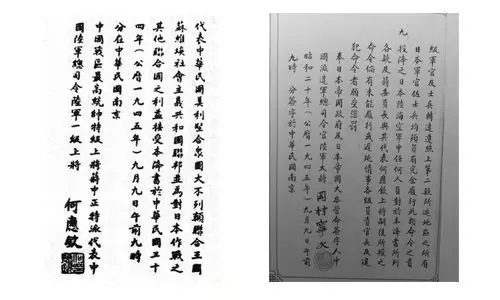 代表中華民國美利堅合眾國大不列顛聯合王國
蘇維埃社會主義共和國聯邦並為對日本作戰之
其他聯合國之利益接受本降書於中華民國三十
四年(公曆一九四五年)九月九日午前九時
分在中華民國南京
中國戰區最高統帥特級上將蔣中正特派代表中
國陸軍總司令陸軍一級上將
何應欽
九
級軍官及士兵轉達遵照上第二款所述地區之所有
日本軍官佐士兵均須負有完全履行此類命令之責
投降之日本陸海空軍中任何人員對於本降書所列
各款及蔣委員長與其代表何應欽上將嗣後所授之
命令倘有未能履行或遲延情事各級負責官長及違
犯命令者願受懲罰
奉日本帝國政府及日本帝國大本營命簽字人中
國派遣軍總司令官陸軍大將 岡村寧次
昭和二十年(公曆一九四五年)九月九日午前
九時 分簽字於中華民國南京